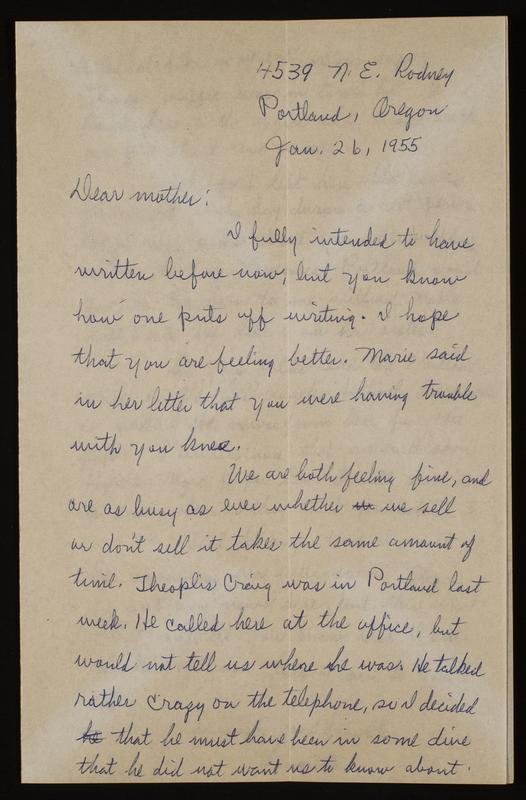 4539 N. E. Rodney
Portland, Oregon
Jan. 26, 1955
Dear mother:
I fully intended to have
written before now, but you know
how one puts off writing. I hope
that you are feeling better. Marie said
in her letter that you were having trouble
with you knee.
We are both feeling fine, and
are as busy as ever whether we sell
or don't sell it takes the same amount of
time. Theoplis Craig was in Portland last
week. He called here at the office, but
would not tell us where he was. He talked
rather crazy on the telephone, so I decided
that he must have been in some dive
that he did not want us to know about.